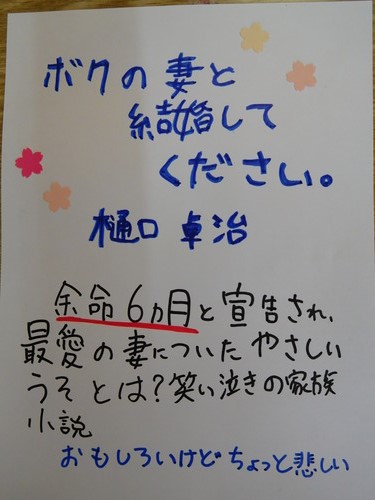 ボクの妻と
結婚して
ください。
樋口卓治
余命6ヵ月と宣告され、
最愛の妻についたやさしい
うそとは?笑い泣きの家族
小説
おもしろいけどちょっと悲しい